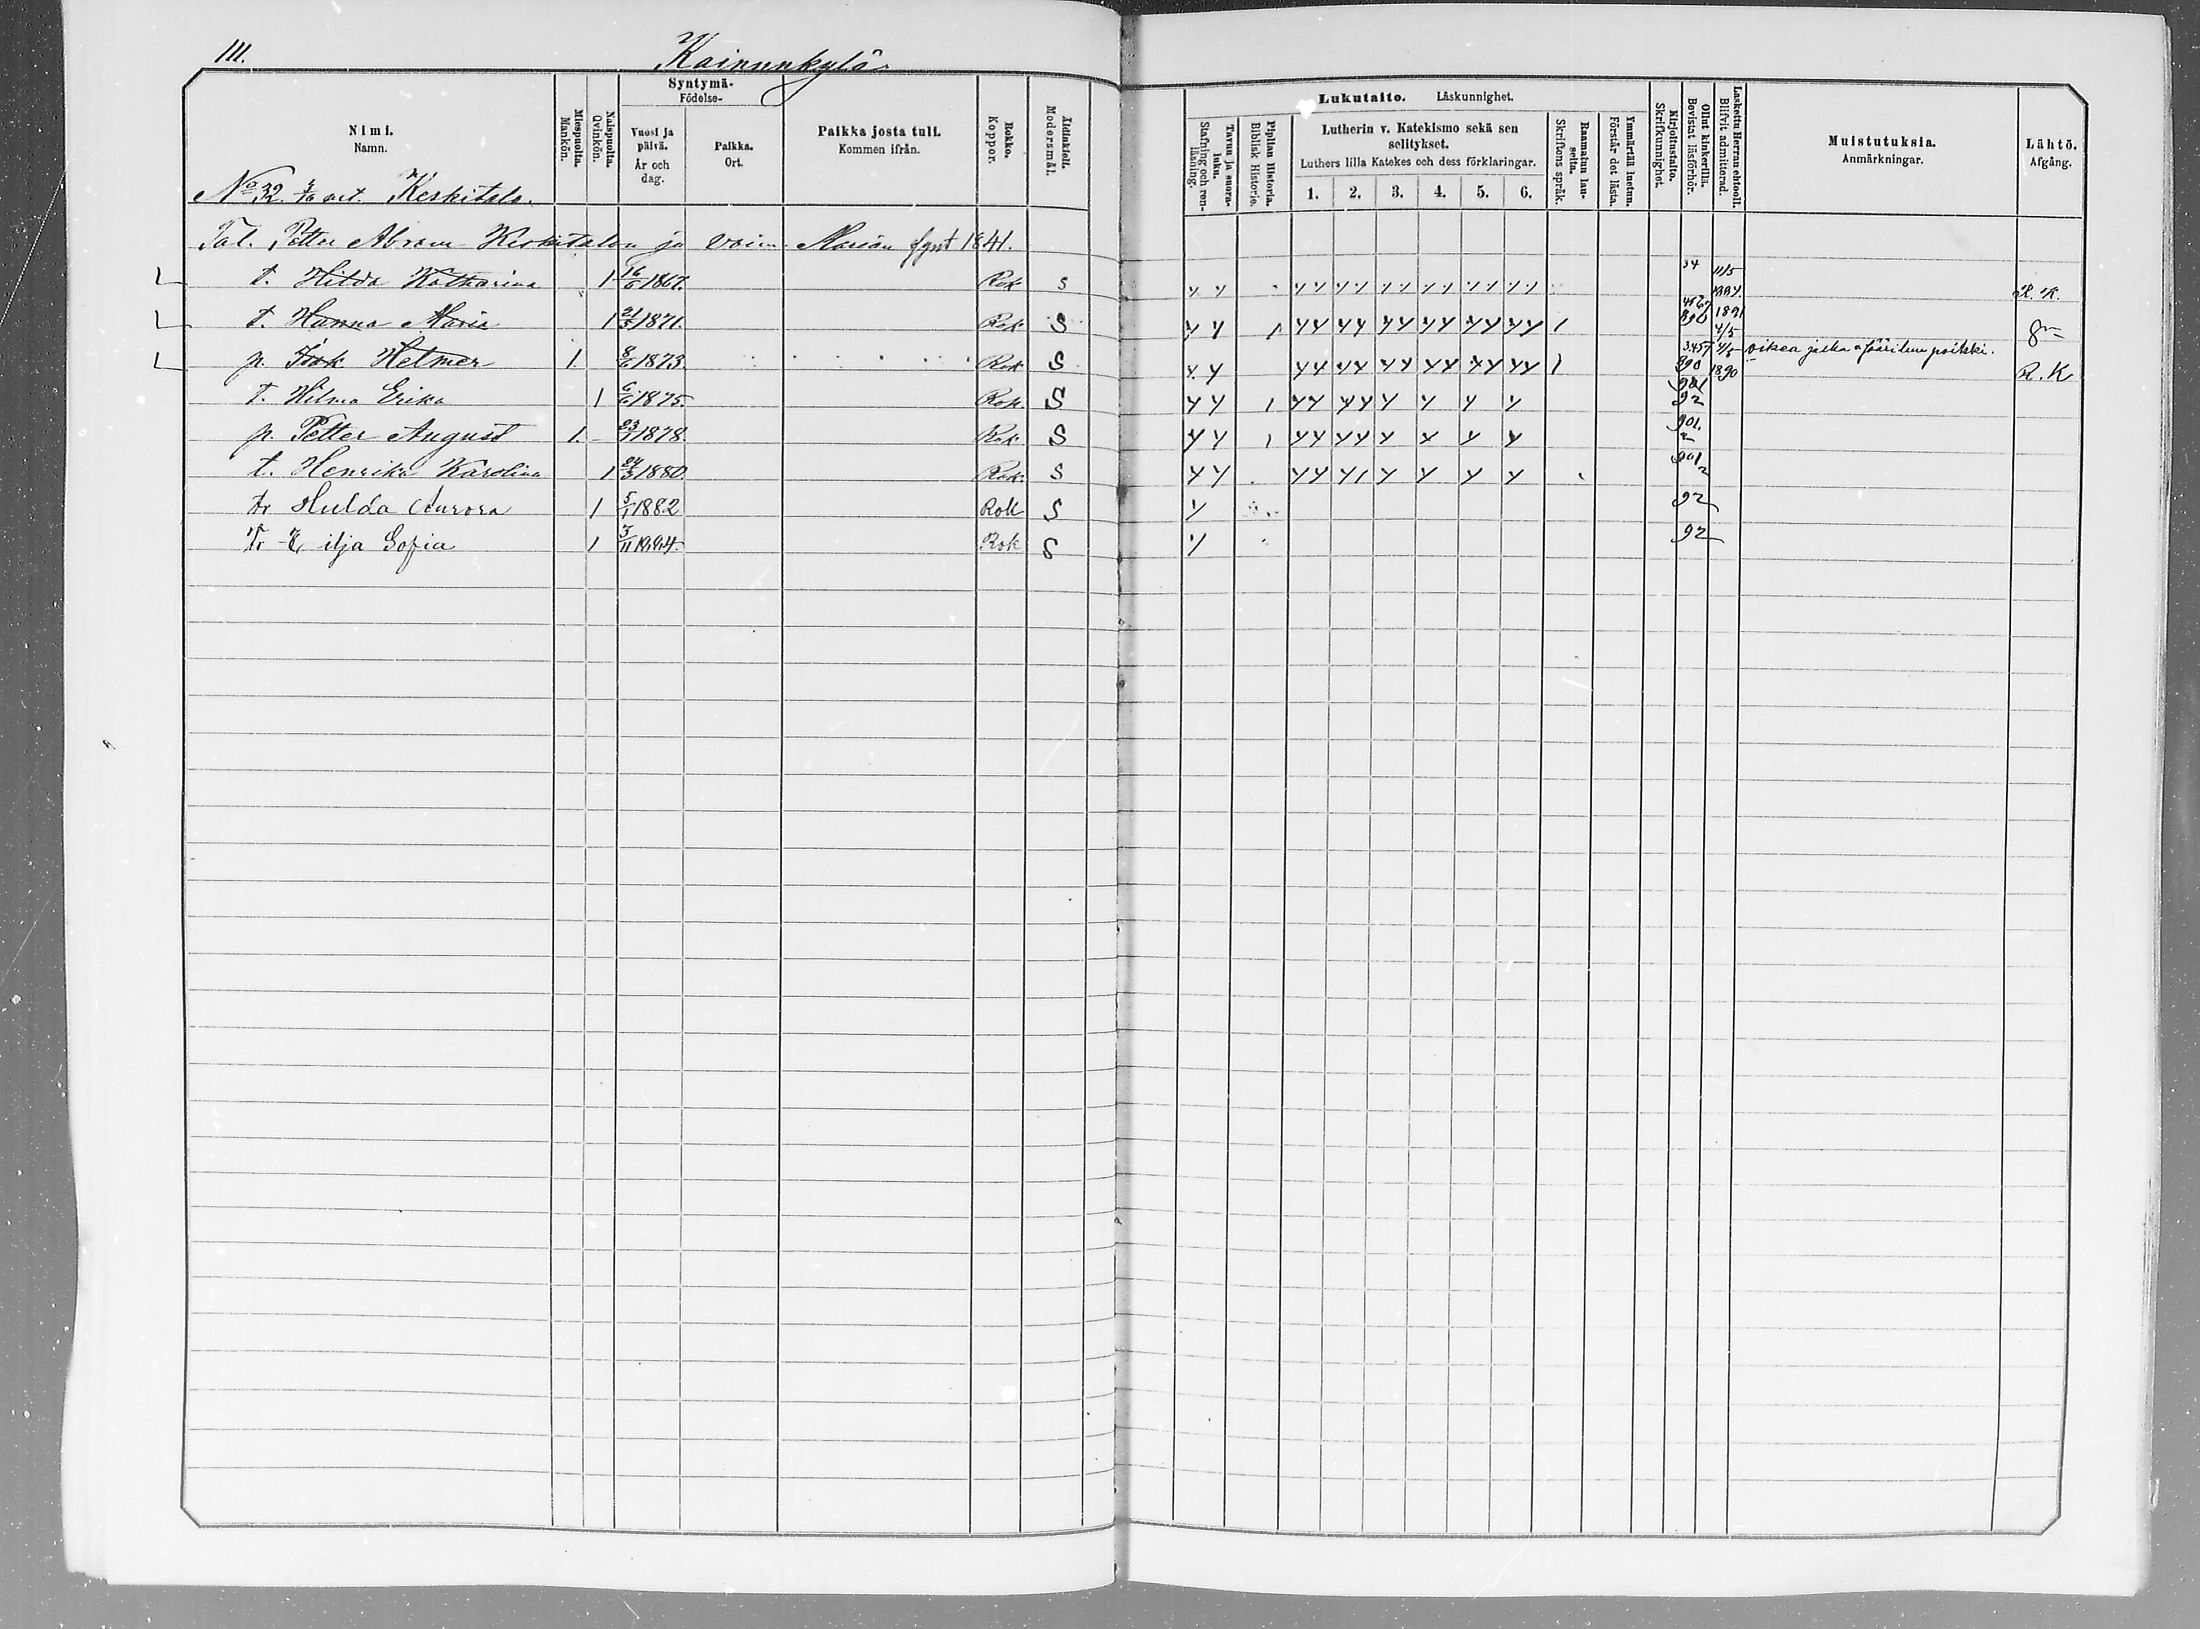 III.
Kainunkylä
Nimi.
Namn.
Miespuolta.
Mankön.
Naispuolta.
Qvinkön.
Syntymä-
Födelse-
Vuosi ja päivä.
År och dag.
Paikka.
Ort.
Paikka josta tuli.
Kommen ifrån.
Rokko.
Koppor.
Äidinkieli.
Modersmål.
Lukutaito. Läskunnighet.
Tavuu ja suora-luku.
Stafning och ren-läsning.
Piplian Historia.
Biblisk Historie.
Lutherin v. Katekismo sekä sen selitykset.
Luthers lilla Katekes och dess förklaringar.
1. 2. 3. 4. 5. 6.
Raamatun lau-seita.
Skriftens språk.
Ymmärtää luetun.
Förstår det lästa.
Kirjoitustaito.
Skrifkunnighet.
Ollut kinkerillä.
Bevistat läsförhör.
Laskettu Herran ehtooll.
Blifvit admitterad.
Muistutuksia.
Anmärkningar.
Lähtö.
Afgång.
No 32. Keskitalo.
Tal. Petter Abram Keskitalon ja vaim. Marian synt 1841.
t. Hilda Katharina 1 16/6 1867. Rok s 34 11/5 R. K.
t. Hanna Maria 1 21/3 1871. Rok. S 890 1891 4/5
p. Isak Helmer 1. 8/6 1873. Rok S 3.457 890 4/5 1890 oikea jalka poikki. R. K
t. Hilma Erika 1 6/6 1875. Rok. S 92
p. Petter August 1. 23/7 1878. Rok. S 901.
t. Henrika Karolina 1 24/3 1880. Rok. S 901
tr Hulda Aurora 1 5/1 1882 Rok S 92
Tr Eilja Sofia 1 3/11 1884. Rok S 92